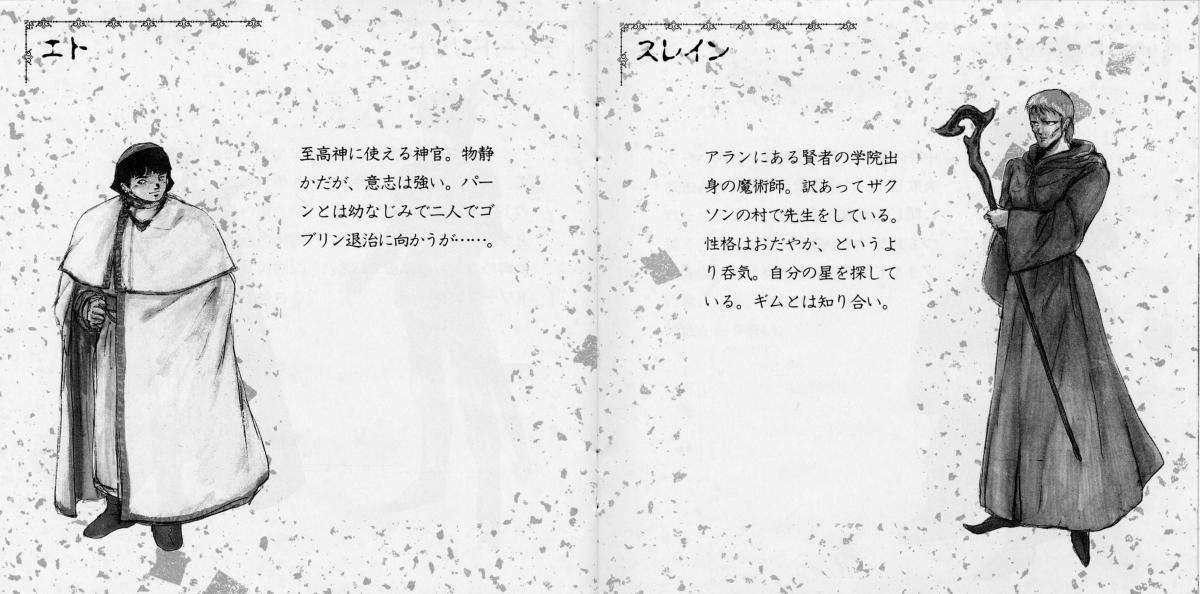 エト
至高神に使える神官。物静
かだが、意志は強い。パー
ンとは幼なじみで二人でゴ
ブリン退治に向かうが……。
スレイン
アランにある賢者の学院出
身の魔術師。訳あってザク
ソンの村で先生をしている。
性格はおだやか、というよ
り呑気。自分の星を探して
いる。ギムとは知り合い。